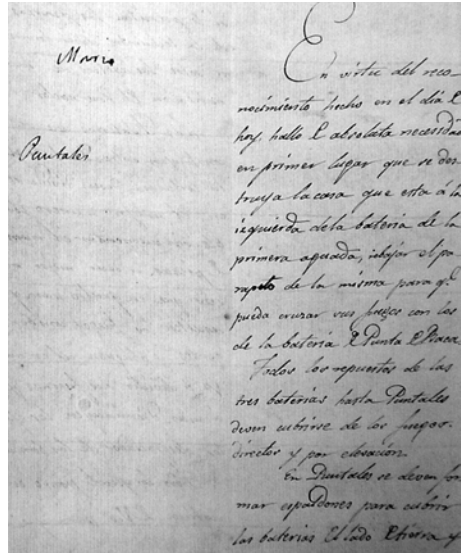 Marzo
Puntales
En virtud del reco-
nocimiento hecho en el dia E
hoy, hallo E absoluta necesidad
en primer lugar que se des
truya la casa que esta á la
izquierda dela bateria de la
primera aguada, rebajar el pa
rapeto de la misma para q.e
pueda cruzar sus fuegos con los
de la bateria E Punta E Baca
Todos los repuestos de las
tres baterias hasta Puntales
deven cubrirse de los fuegos
directos y por elevacion.
En Puntales se deven for
mar espaldones para cubrir
las baterias El lado E tierra y